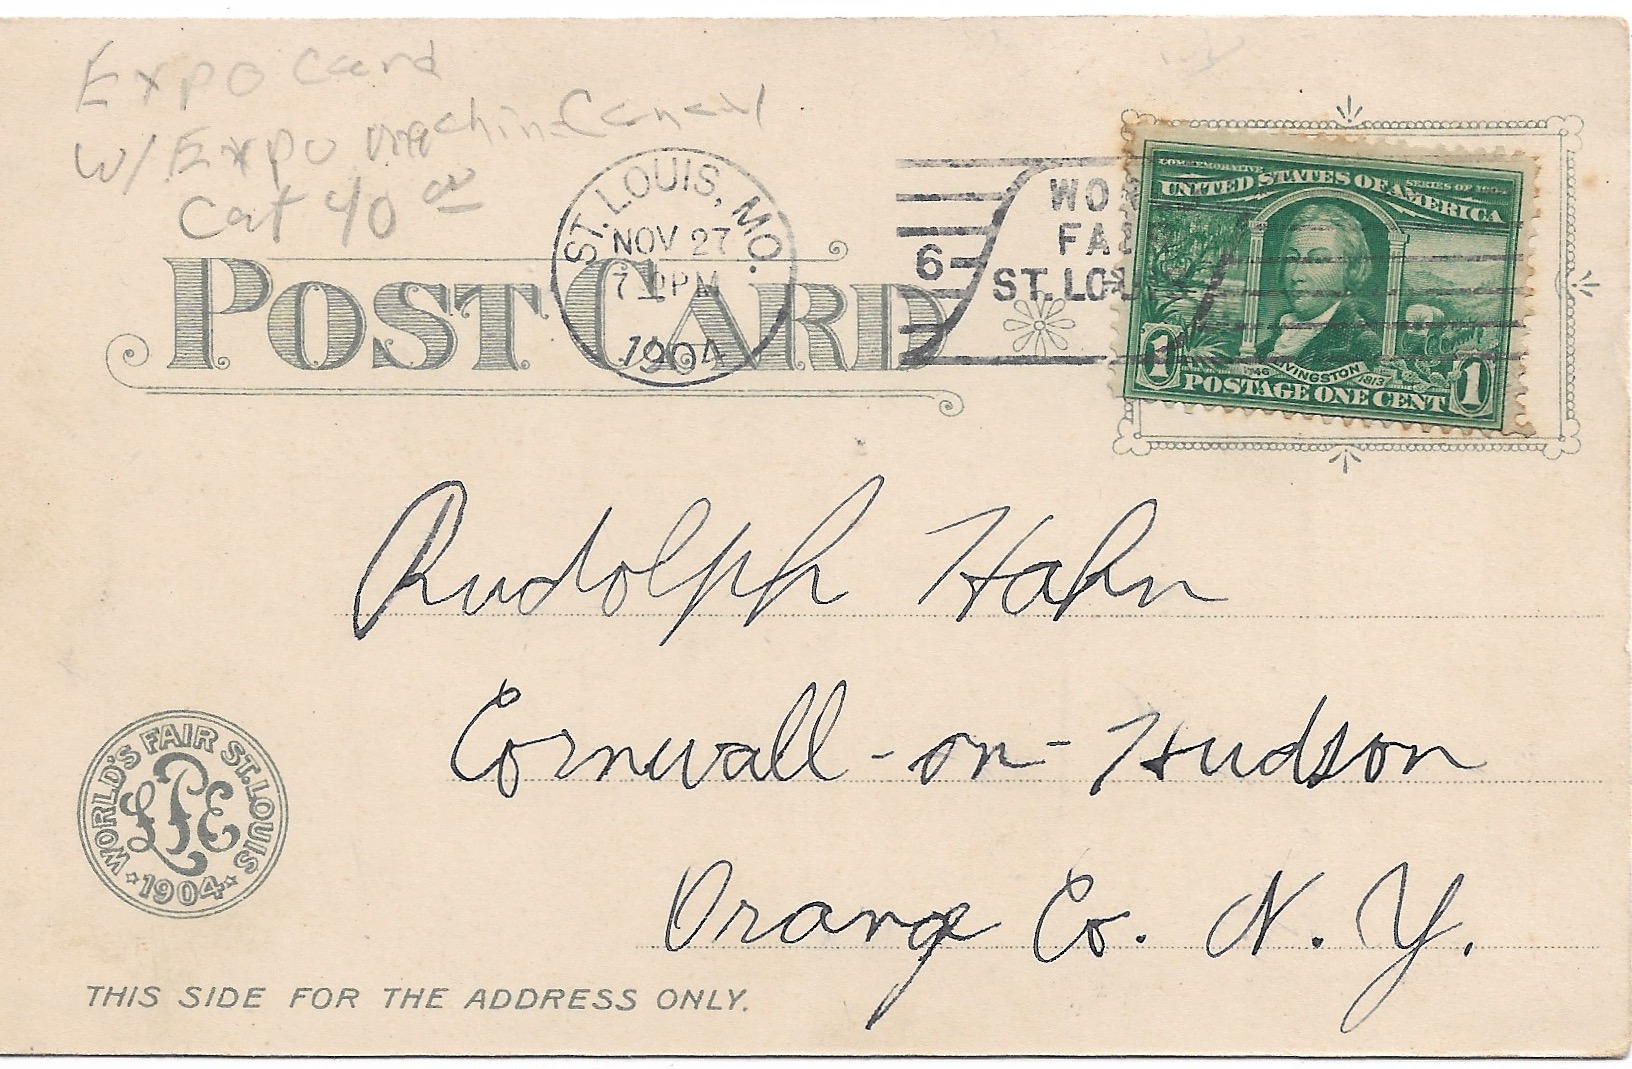 Expo Card
W/ Expo machine Cancel
Cat 40 00
ST. LOUIS, MO.
NOV 27
7 PM
1904
6
WO
FAIR
ST. LOU
COMMEMORATIVE SERIES OF 1904
UNITED STATES OF AMERICA
LIVINGSTON 1813
1 POSTAGE ONE CENT 1
POST CARD
Rudolph Hahn
Cornwall-on-Hudson
Orange Co. N. Y.
WORLD'S FAIR ST. LOUIS
LPE
1904
THIS SIDE FOR THE ADDRESS ONLY.